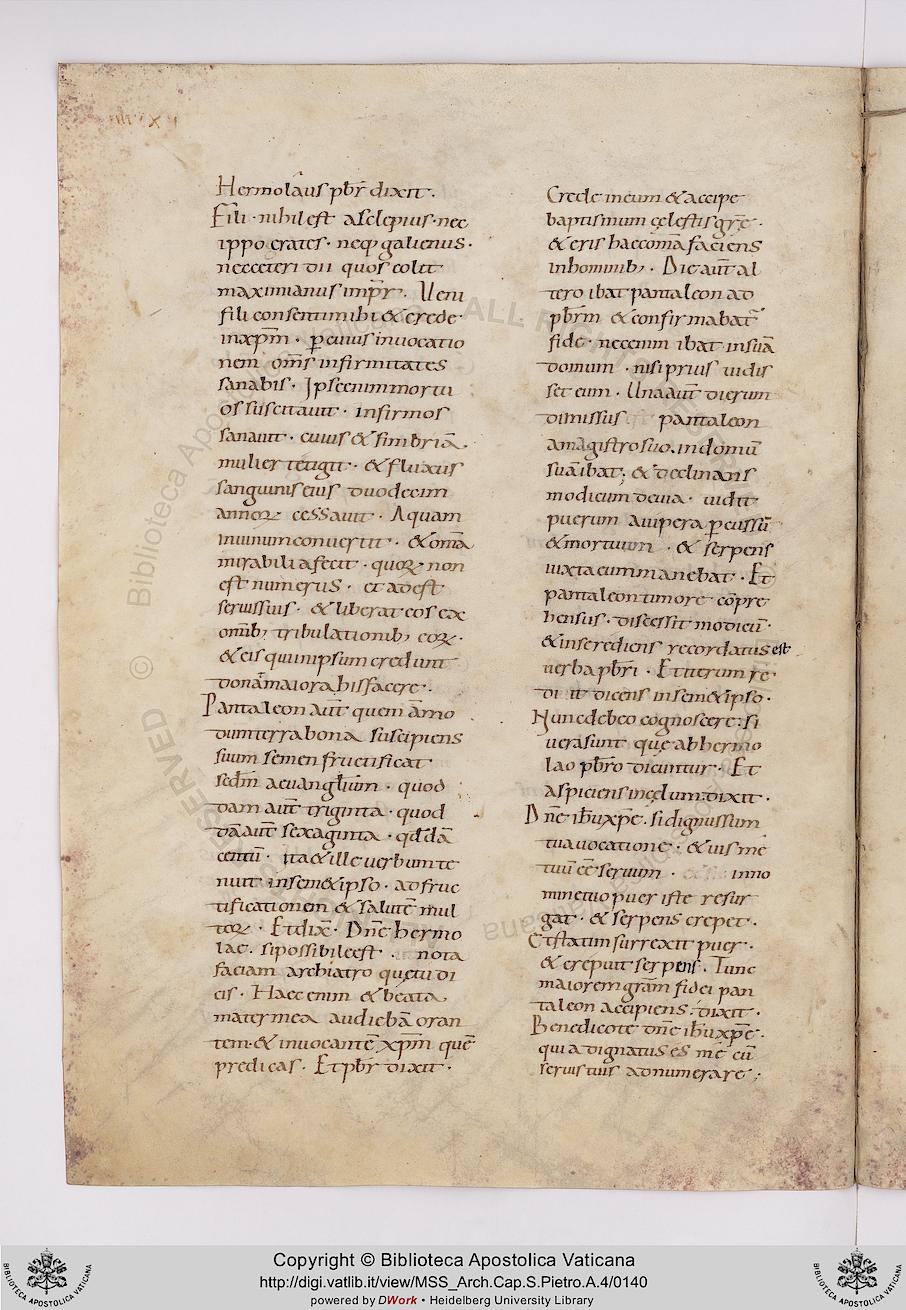 Hermolaus pbr̄ dixit.
Fili · nihil est asclepius · nec
ippocrates · neq; galienus ·
necceteri dii quos colit
maximianus impr̄ . Veni
fili consentimihi & crede
inxp̄m · p̱ cuius inuocatio
nem om̄s infirmitates
sanabis · Ipseenimmortu
ossuscitauit · infirmos
sanauit · cuius & fimbriā
mulier tetigit · & fluxus
sanguiniseius duodecim
annoꝝ cessauit · Aquam
inuinumconuertit · & om̄a
mirabiliafecit · quoꝝ non
est numerus · et adest
seruissuis · & liberat eos ex
omib; tribulationib; eoꝝ ·
& eis quiinipsum credunt
donāmaiora hisfacere ·
Pantaleon aut̄ quem ām̄o
dumterrabona suscipiens
suum semen fructificat
sedm̄ aeuangłium · quod
dam aut̄ triginta · quod
dāaut̄ sexaginta · qddā
centū · ita & ille uerbum te
nuit insem&ipso · ad fruc
tificationem & salutē mul
toꝝ · Et dix̄ · Dn̄e hermo
lae · si possibileest · nota
faciam archiatro quętu di
cis · Haec enim & beata
mater mea audiebā oran
tem · & inuocantē xp̄m quē
predicas · Et pbr̄ dixit ·
Crede ineum & accipe
baptismum cęlestis gr̄ę ·
& eris haecom̄a faciens
inhominib; · Die aut̄ al
tero ibat pantaleon ad
pbr̄m & confirmabat̄
fide · necenim ibat insuā
domum · nisi prius uidis
set eum · Vna aut̄ dierum
dimissus pantaleon
amagistro suo, indomū
suā ibat; & declinans
modicum deuia · uidit
puerum auipera p̱cussū
& mortuum · & serpens
iuxta eummanebat · Et
pantaleon timore cōpre
hensus · discessit modicū ·
& inserediens recordatus est
uerba pbr̄i · Et iterum re
di it dicens insem&ipso ·
Nuncdebeo cognoscere · si
uerasunt quę abhermo
lao pbr̄o dicuntur · Et
aspiciens incęlum · dixit ·
Dn̄e ih̄u xp̄e · si dignussum
tua uocatione · & uis me
tuū ēē seruum · inno
mine tuo puer iste resur
gat · & serpens crepet ·
Et statim surrexit puer ·
& crepuit serpens · Tunc
maiorem gr̄am fidei pan
taleon accipiens · dixit ·
Benedicote dn̄e ih̄u xp̄e ·
quia dignatus es me cū
seruis tuis adnumerare ;
Copyright © Biblioteca Apostolica Vaticana
http://digi.vatlib.it/view/MSS_Arch.Cap.S.Pietro.A.4/0140
powered by DWork • Heidelberg University Library